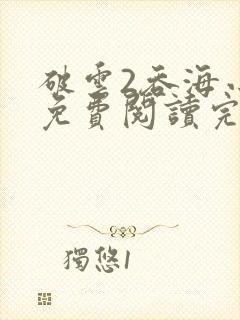 破雲2吞海
免費閱讀完
獨悠1